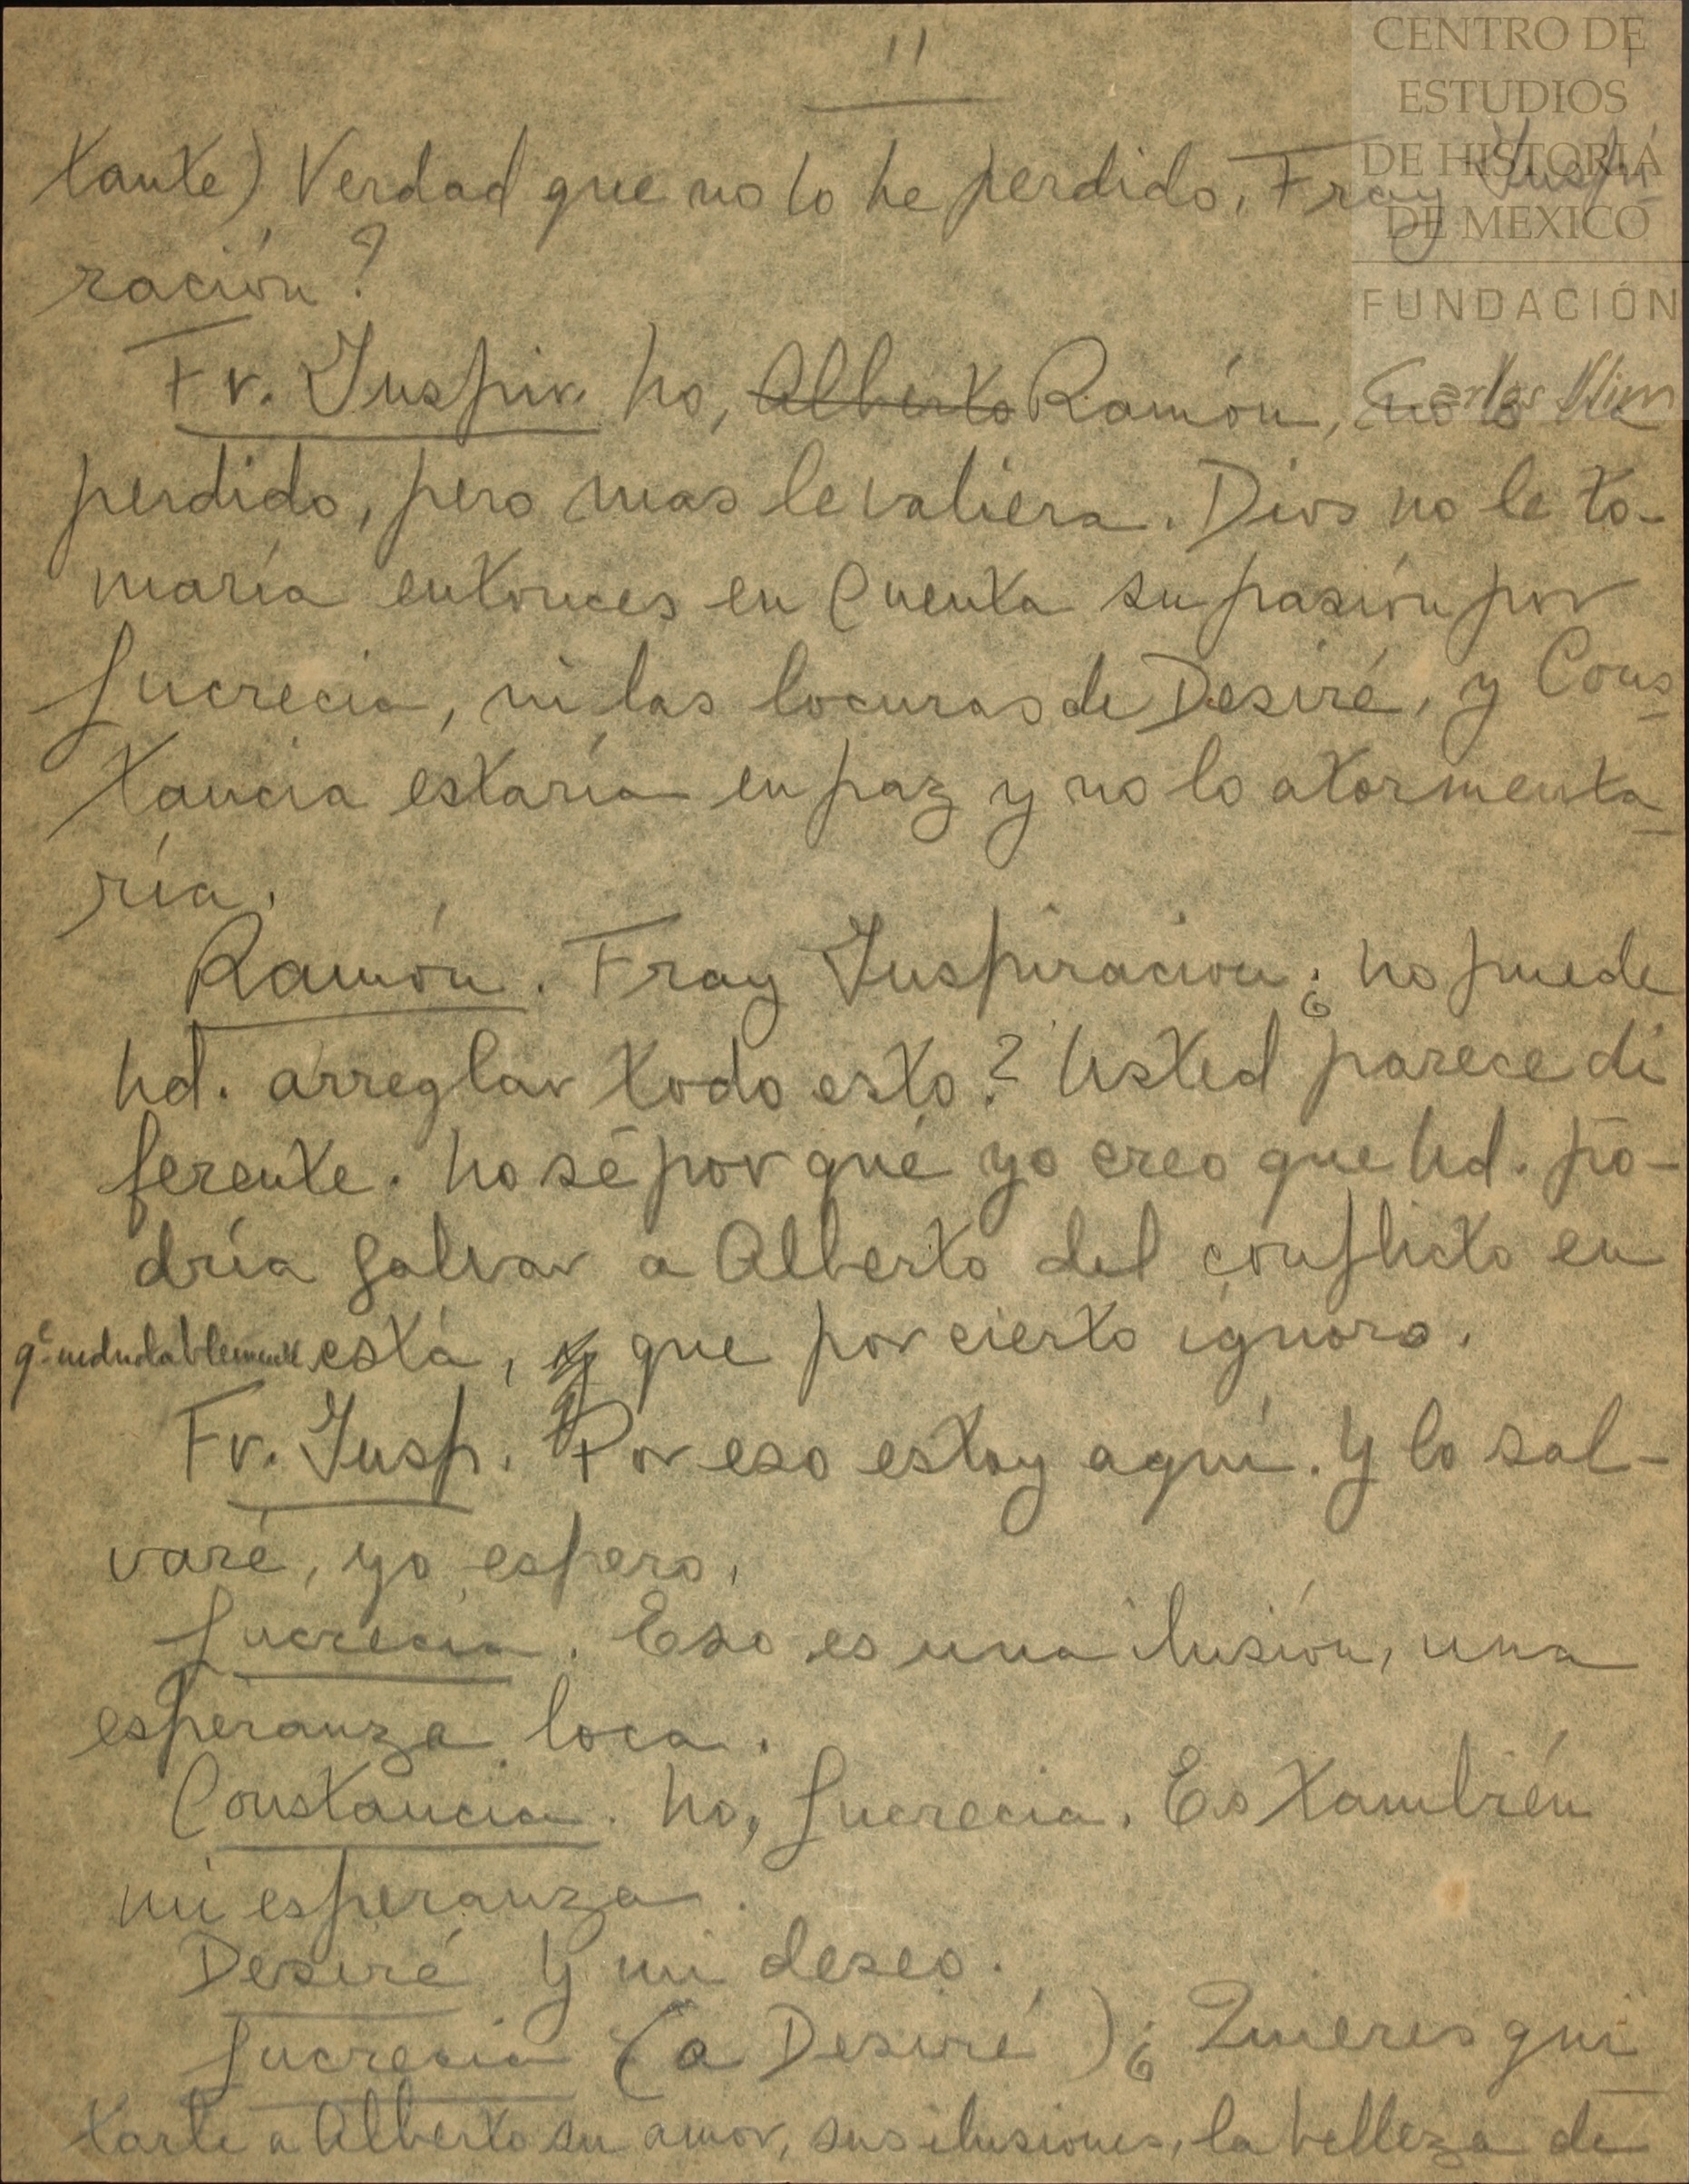 11
CENTRO DE
ESTUDIOS
DE HISTORIA
DE MEXICO
FUNDACIÓN
Carlos Slim
tante) Verdad que no lo he perdido, Fray Inspi-
ración?
Fr. Inspir. No, Alberto Ramón, no lo ha
perdido, pero mas le valiera. Dios no le to-
maría entonces en cuenta su pasión por
Lucrecia, ni las locuras de Desiré, y Cons-
tancia estaría en paz y no lo atormenta-
ría.
Ramón. Fray Inspiracion ¿no puede
Ud. arreglar todo esto? Usted parece di
ferente. No sé por qué yo creo que Ud. po-
dría salvar a Alberto del conflicto en
qe indudablemente está, y que por cierto ignoro.
Fr. Insp. Por eso estoy aquí. Y lo sal-
varé, yo espero.
Lucrecia. Eso es una ilusión, una
esperanza loca.
Constancia. No, Lucrecia. Es también
mi esperanza.
Desiré Y mi deseo.
Lucrecia (a Desiré) ¿Quieres qui-
tarle a Alberto su amor, sus ilusiones, la belleza de